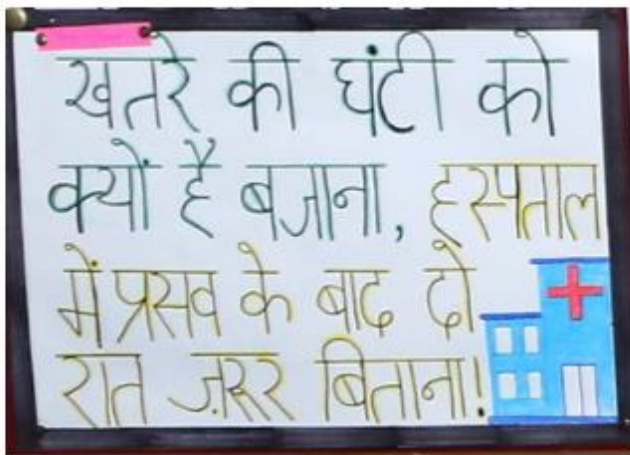 खतरे की घंटी को
क्यों है बजाना, हस्पताल
में प्रसव के बाद दो
रात ज़रूर बिताना!